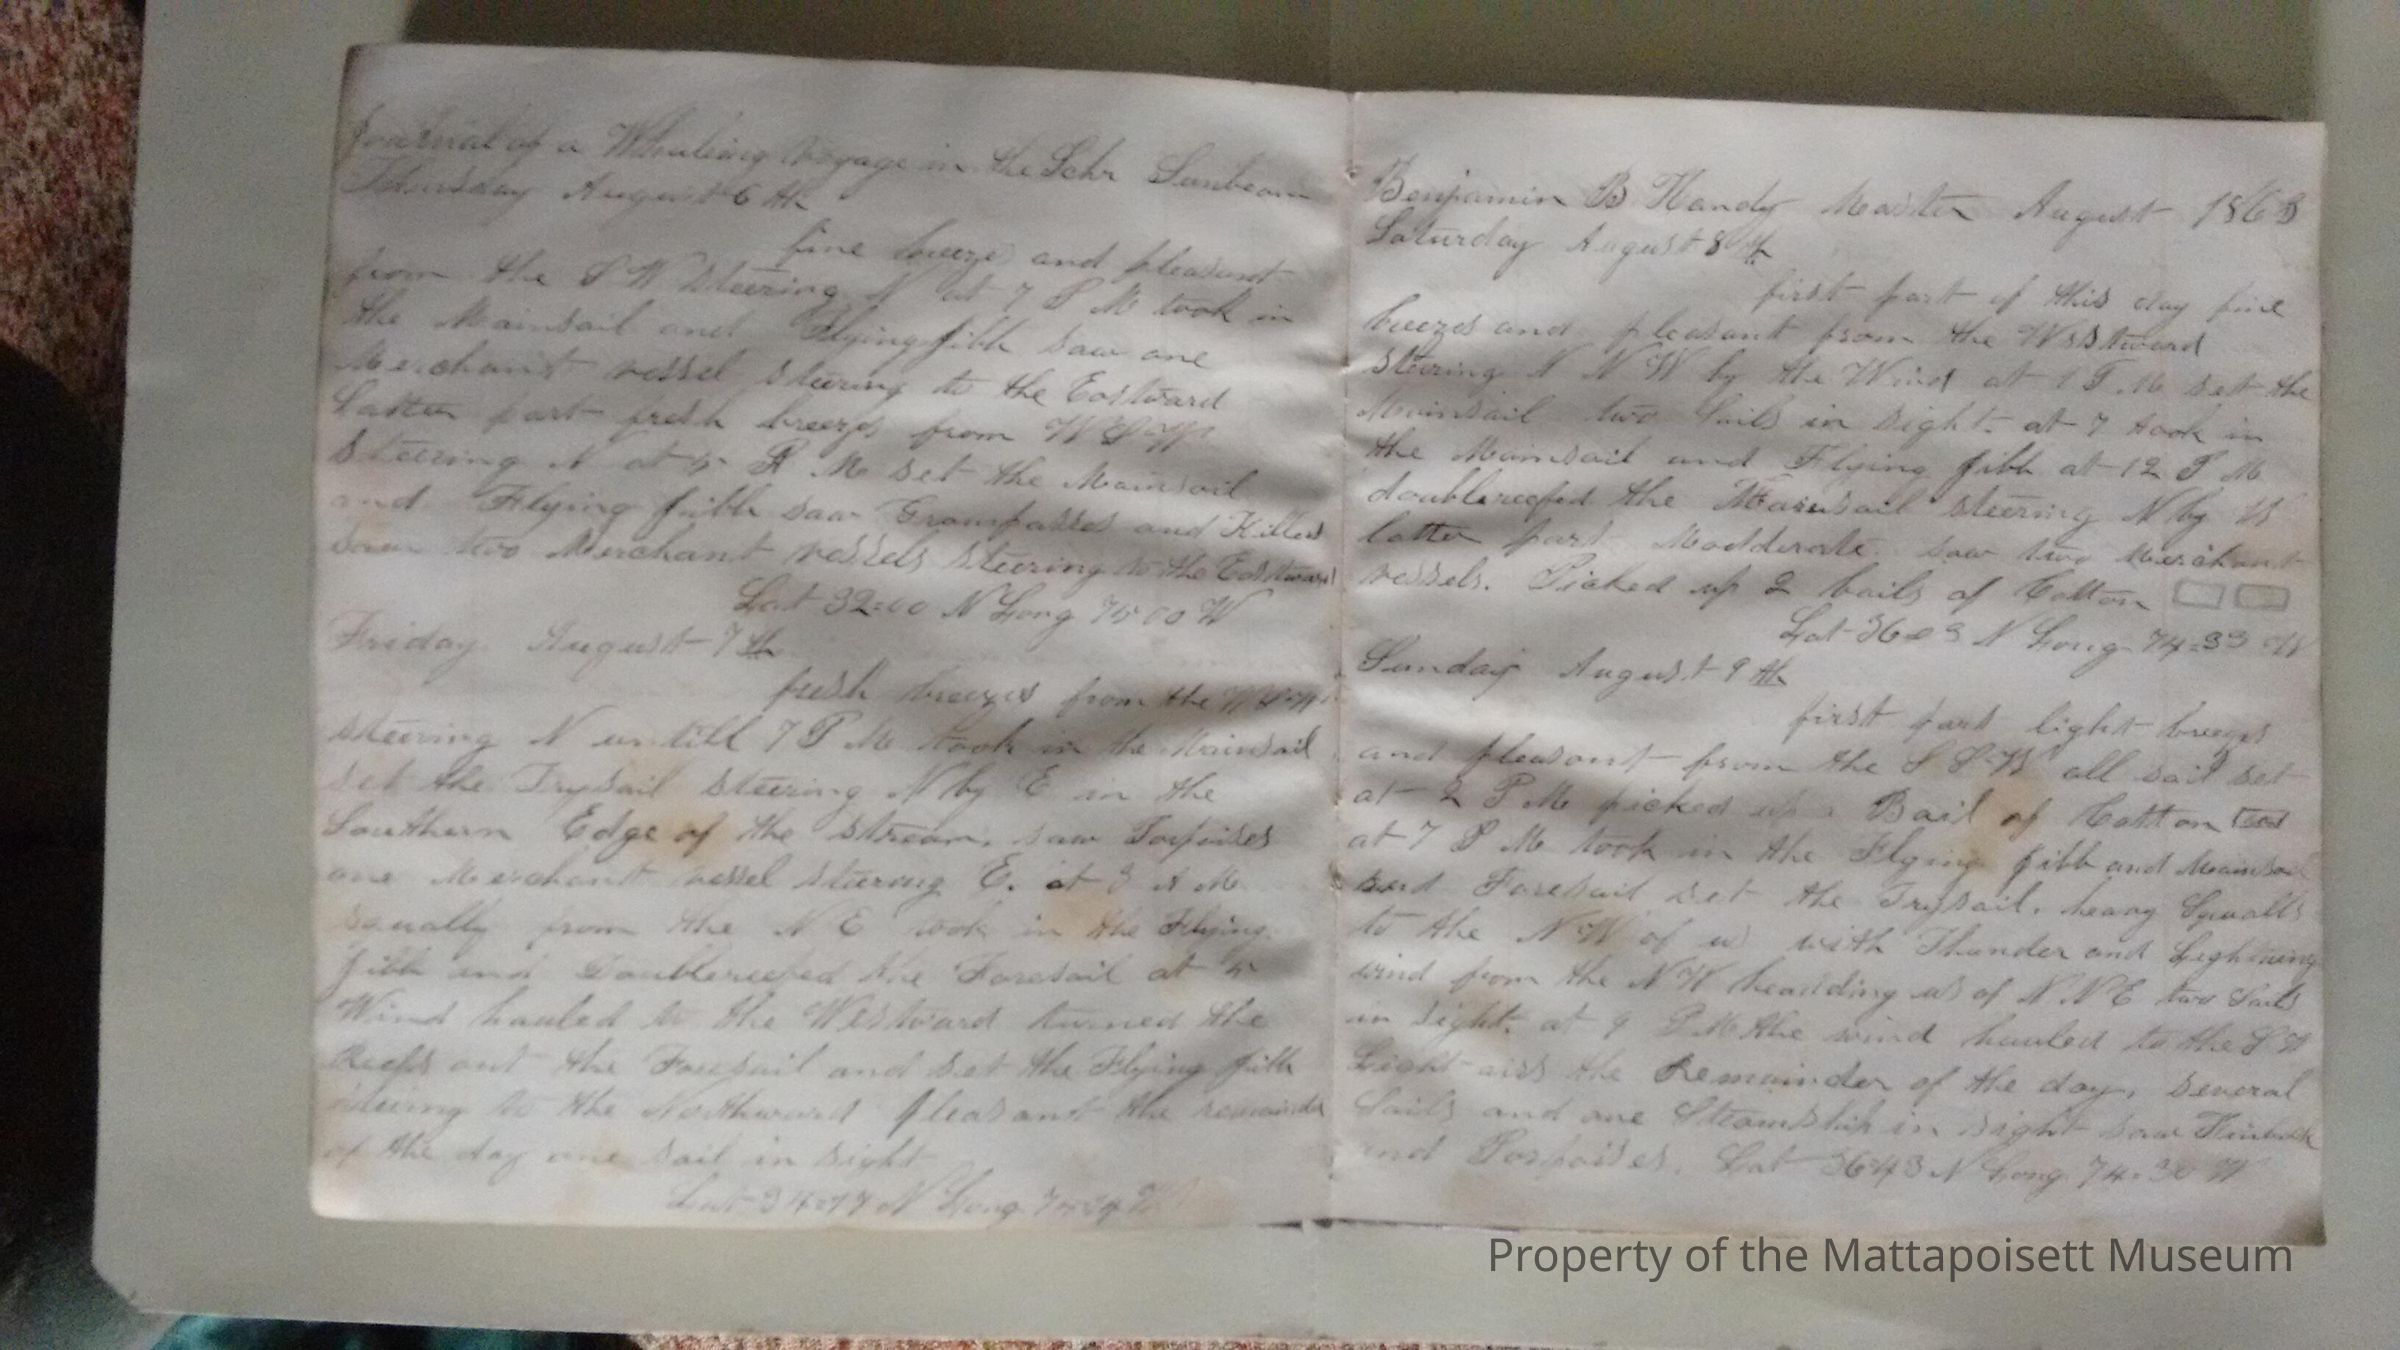 Journal of a Whaleing Voyage in the Schr Sunbeam
Thursday August 6 th
fine breeze and pleasant
from the S W steering N at 7 P M took in
the Mainsail and Flying jibb saw one
Merchant vessel steering to the Eastward
Latter part fresh breezes from W S W
steering N at 5 A M set the Mainsail
and Flying jibb saw Grampasses and Killers
saw two Merchant vessels steering to the Eastward
Lat 32=00 N Long 75 00 W
Friday August 7 th
fresh breezes from the W S W
steering N untill 7 P M took in the Mainsail
set the Trysail steering N by E in the
Southern Edge of the stream. saw Porpoises
one Merchant vessel steering E. at 3 A M
squally from the N E took in the Flying
jibb and Doublereefed the Foresail at 5
Wind hauled to the Westward turned the
Reefs out the Foresail and set the Flying jibb
steering to the Northward pleasant the remainder
of the day one sail in sight
Lat N Long W
Benjamin B Handy Master August 1868
Saturday August 8 th
first part of this day fine
breezes and pleasant from the Westward
steering N N W by the Wind at 1 P M set the
Mainsail two Sails in sight. at 7 took in
the Mainsail and Flying jibb at 12 P M
doublereefed the Mainsail steering N by W
latter part Modderate. saw two Merchant
vessels. Picked up 2 bails of Cotton
Lat 36=09 N Long 74=33 W
Sunday August 9 th
first part light breezes
and pleasant from the S S W all sail set
at 2 P M picked up a Bail of Cotton
at 7 P M took in the Flying jibb and Mainsail
and Foresail set the Trysail. heavy Squalls
to the N W of us with Thunder and Lightning
wind from the N W heardding us of N N E two Sails
in sight. at 9 P M the wind hauled to the S W
Light airs the Remainder of the day, several
Sails and one Steamship in sight saw Finback
and Porpoises. Lat 36 43 N Long 74=30 W
Property of the Mattapoisett Museum